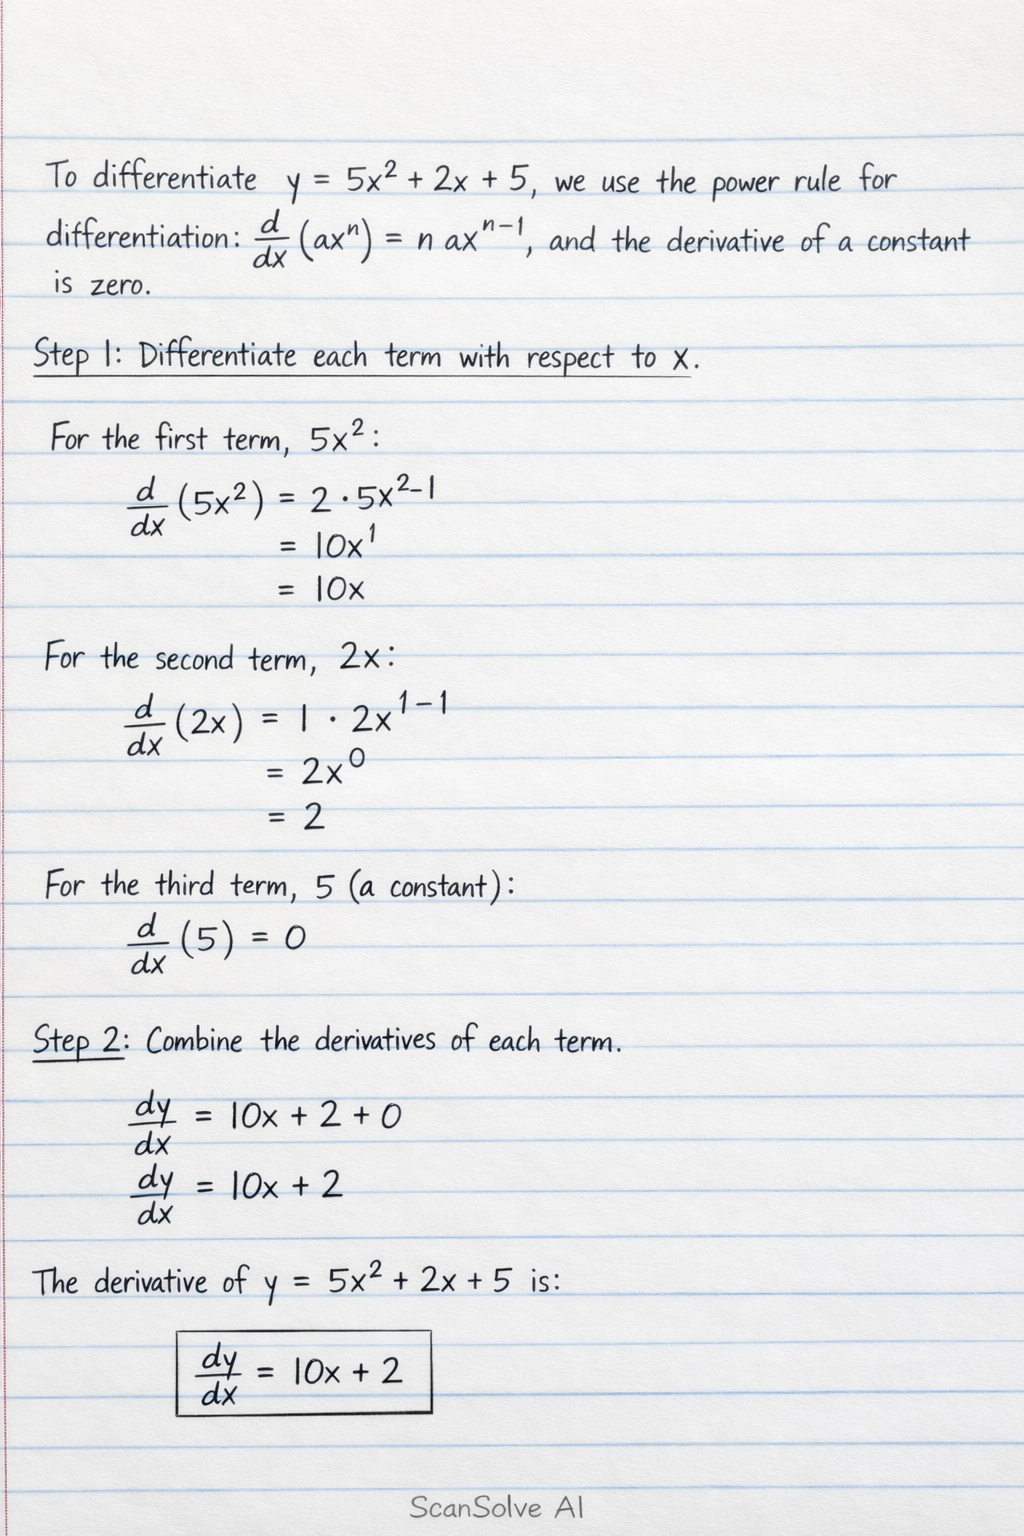 To differentiate y = 5x² + 2x + 5, we use the power rule for
differentiation: d/dx (axⁿ) = n axⁿ⁻¹, and the derivative of a constant
is zero.
Step 1: Differentiate each term with respect to x.
For the first term, 5x²:
d/dx (5x²) = 2 · 5x²⁻¹
= 10x¹
= 10x
For the second term, 2x:
d/dx (2x) = 1 · 2x¹⁻¹
= 2x⁰
= 2
For the third term, 5 (a constant):
d/dx (5) = 0
Step 2: Combine the derivatives of each term.
dy/dx = 10x + 2 + 0
dy/dx = 10x + 2
The derivative of y = 5x² + 2x + 5 is:
dy/dx = 10x + 2
ScanSolve AI